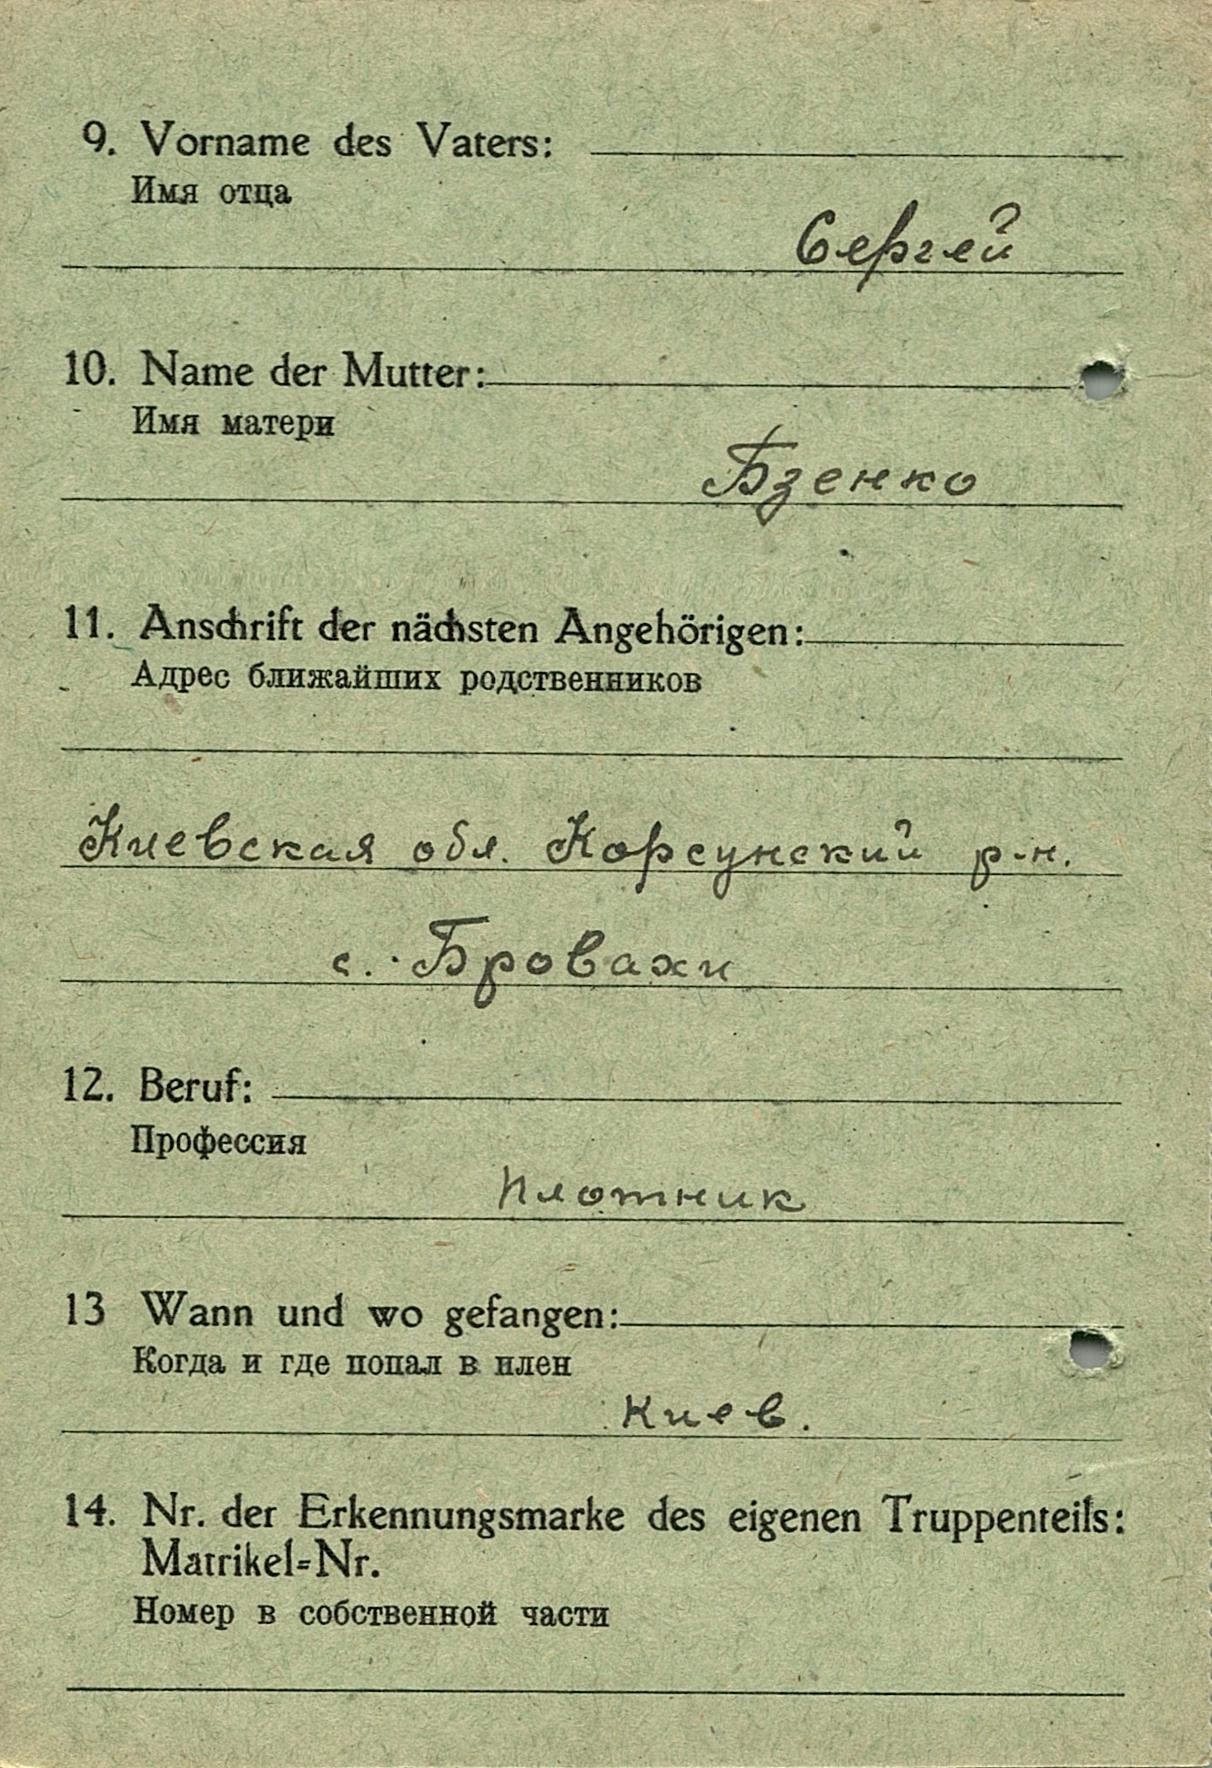 9. Vorname des Vaters:
Имя отца
Сергей
10. Name der Mutter:
Имя матери
Бзенко
11. Anschrift der nächsten Angehörigen:
Адрес ближайших родственников
Киевская обл. Корсунский р-н.
с. Бровахи
12. Beruf:
Профессия
Плотник
13 Wann und wo gefangen:
Когда и где попал в плен
Киев.
14. Nr. der Erkennungsmarke des eigenen Truppenteils:
Matrikel-Nr.
Номер в собственной части